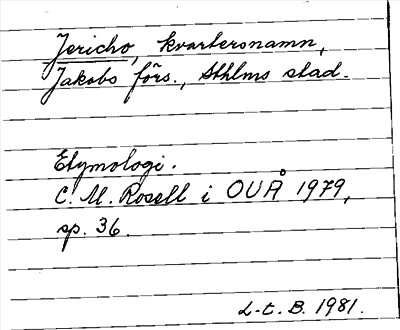 Jericho, kvartersnamn,
Jakobs förs., Sthlms stad.
Etymologi.
C. M. Rosell i OUÅ 1979,
sp. 36.
L-t. B. 1981.